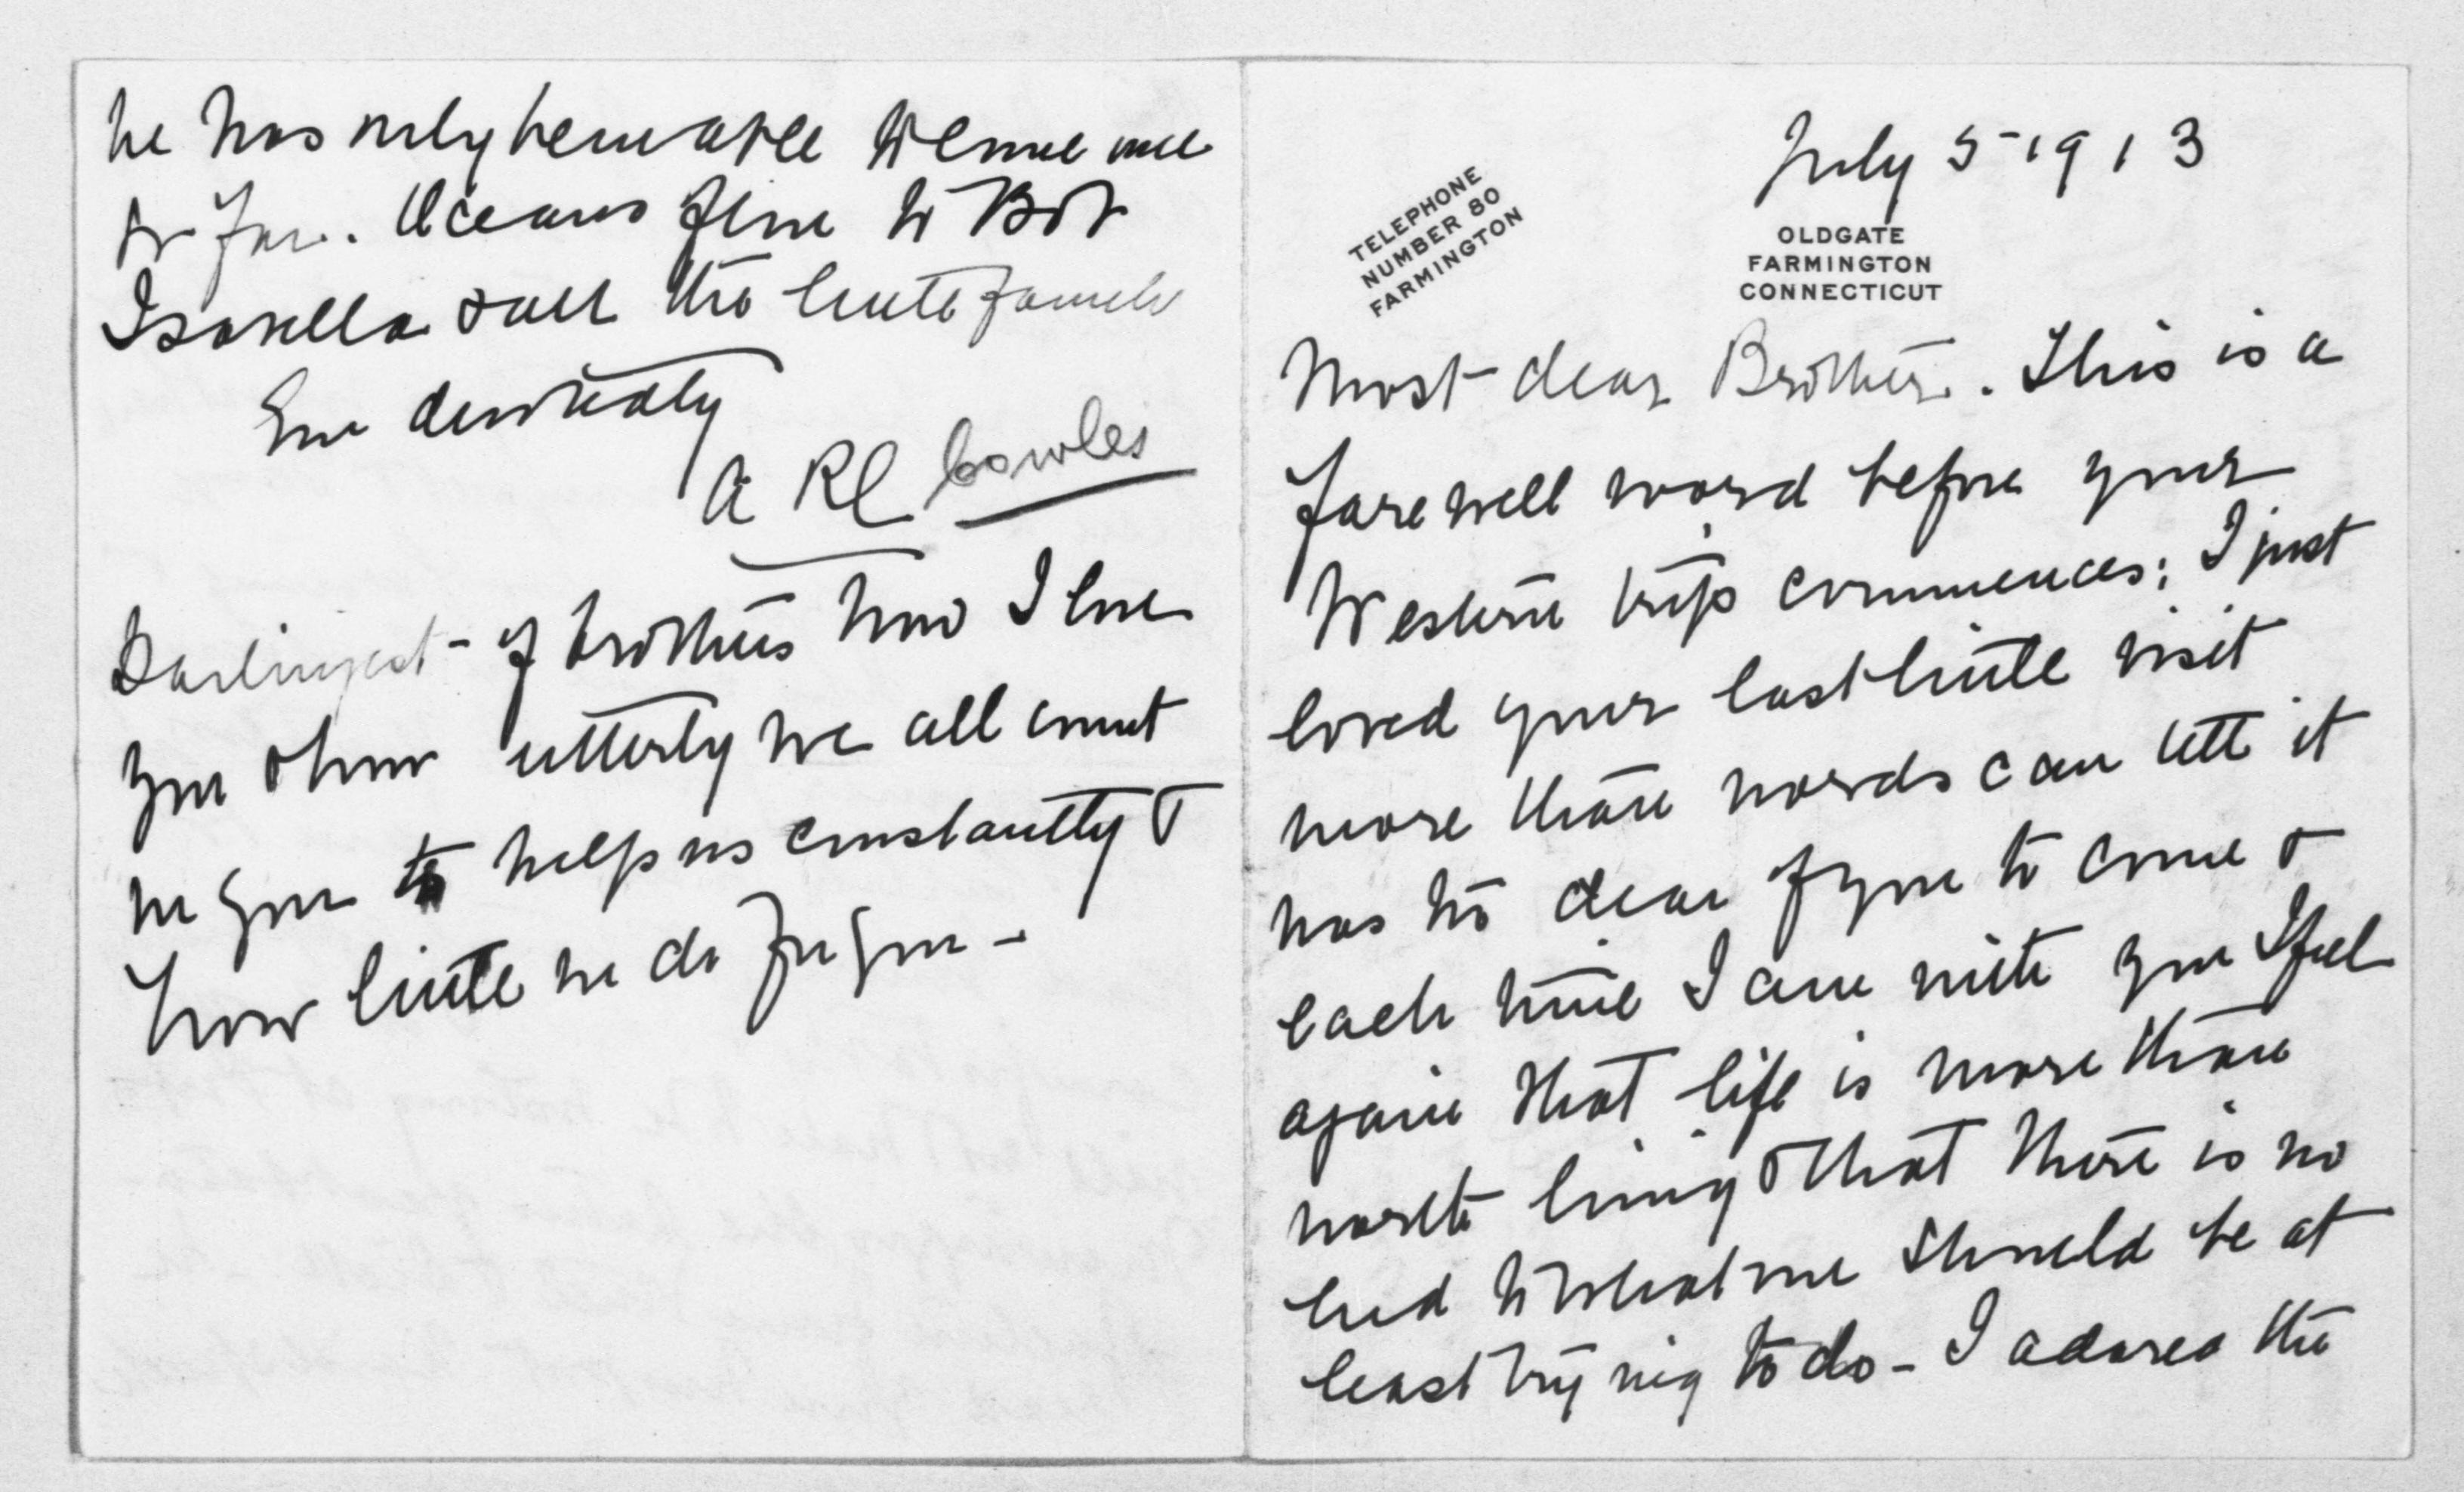 he has only been able to come once
so far. Oceans love to Bob
Isabella & all the little family
Ever devotedly
A R C Cowles
Darlingest - of brothers how I love
you & how utterly we all count
on you to help us constantly &
how little we do for you -
July 5 - 1913
TELEPHONE
NUMBER 80
FARMINGTON
OLDGATE
FARMINGTON
CONNECTICUT
Most dear Brother. This is a
farewell word before your
Western trip commences; I just
loved your last little visit
more than words can tell it
was so dear of you to come &
each time I am with you I feel
again that life is more than
worth living & that there is no
end to what one should be at
least trying to do - I adored the